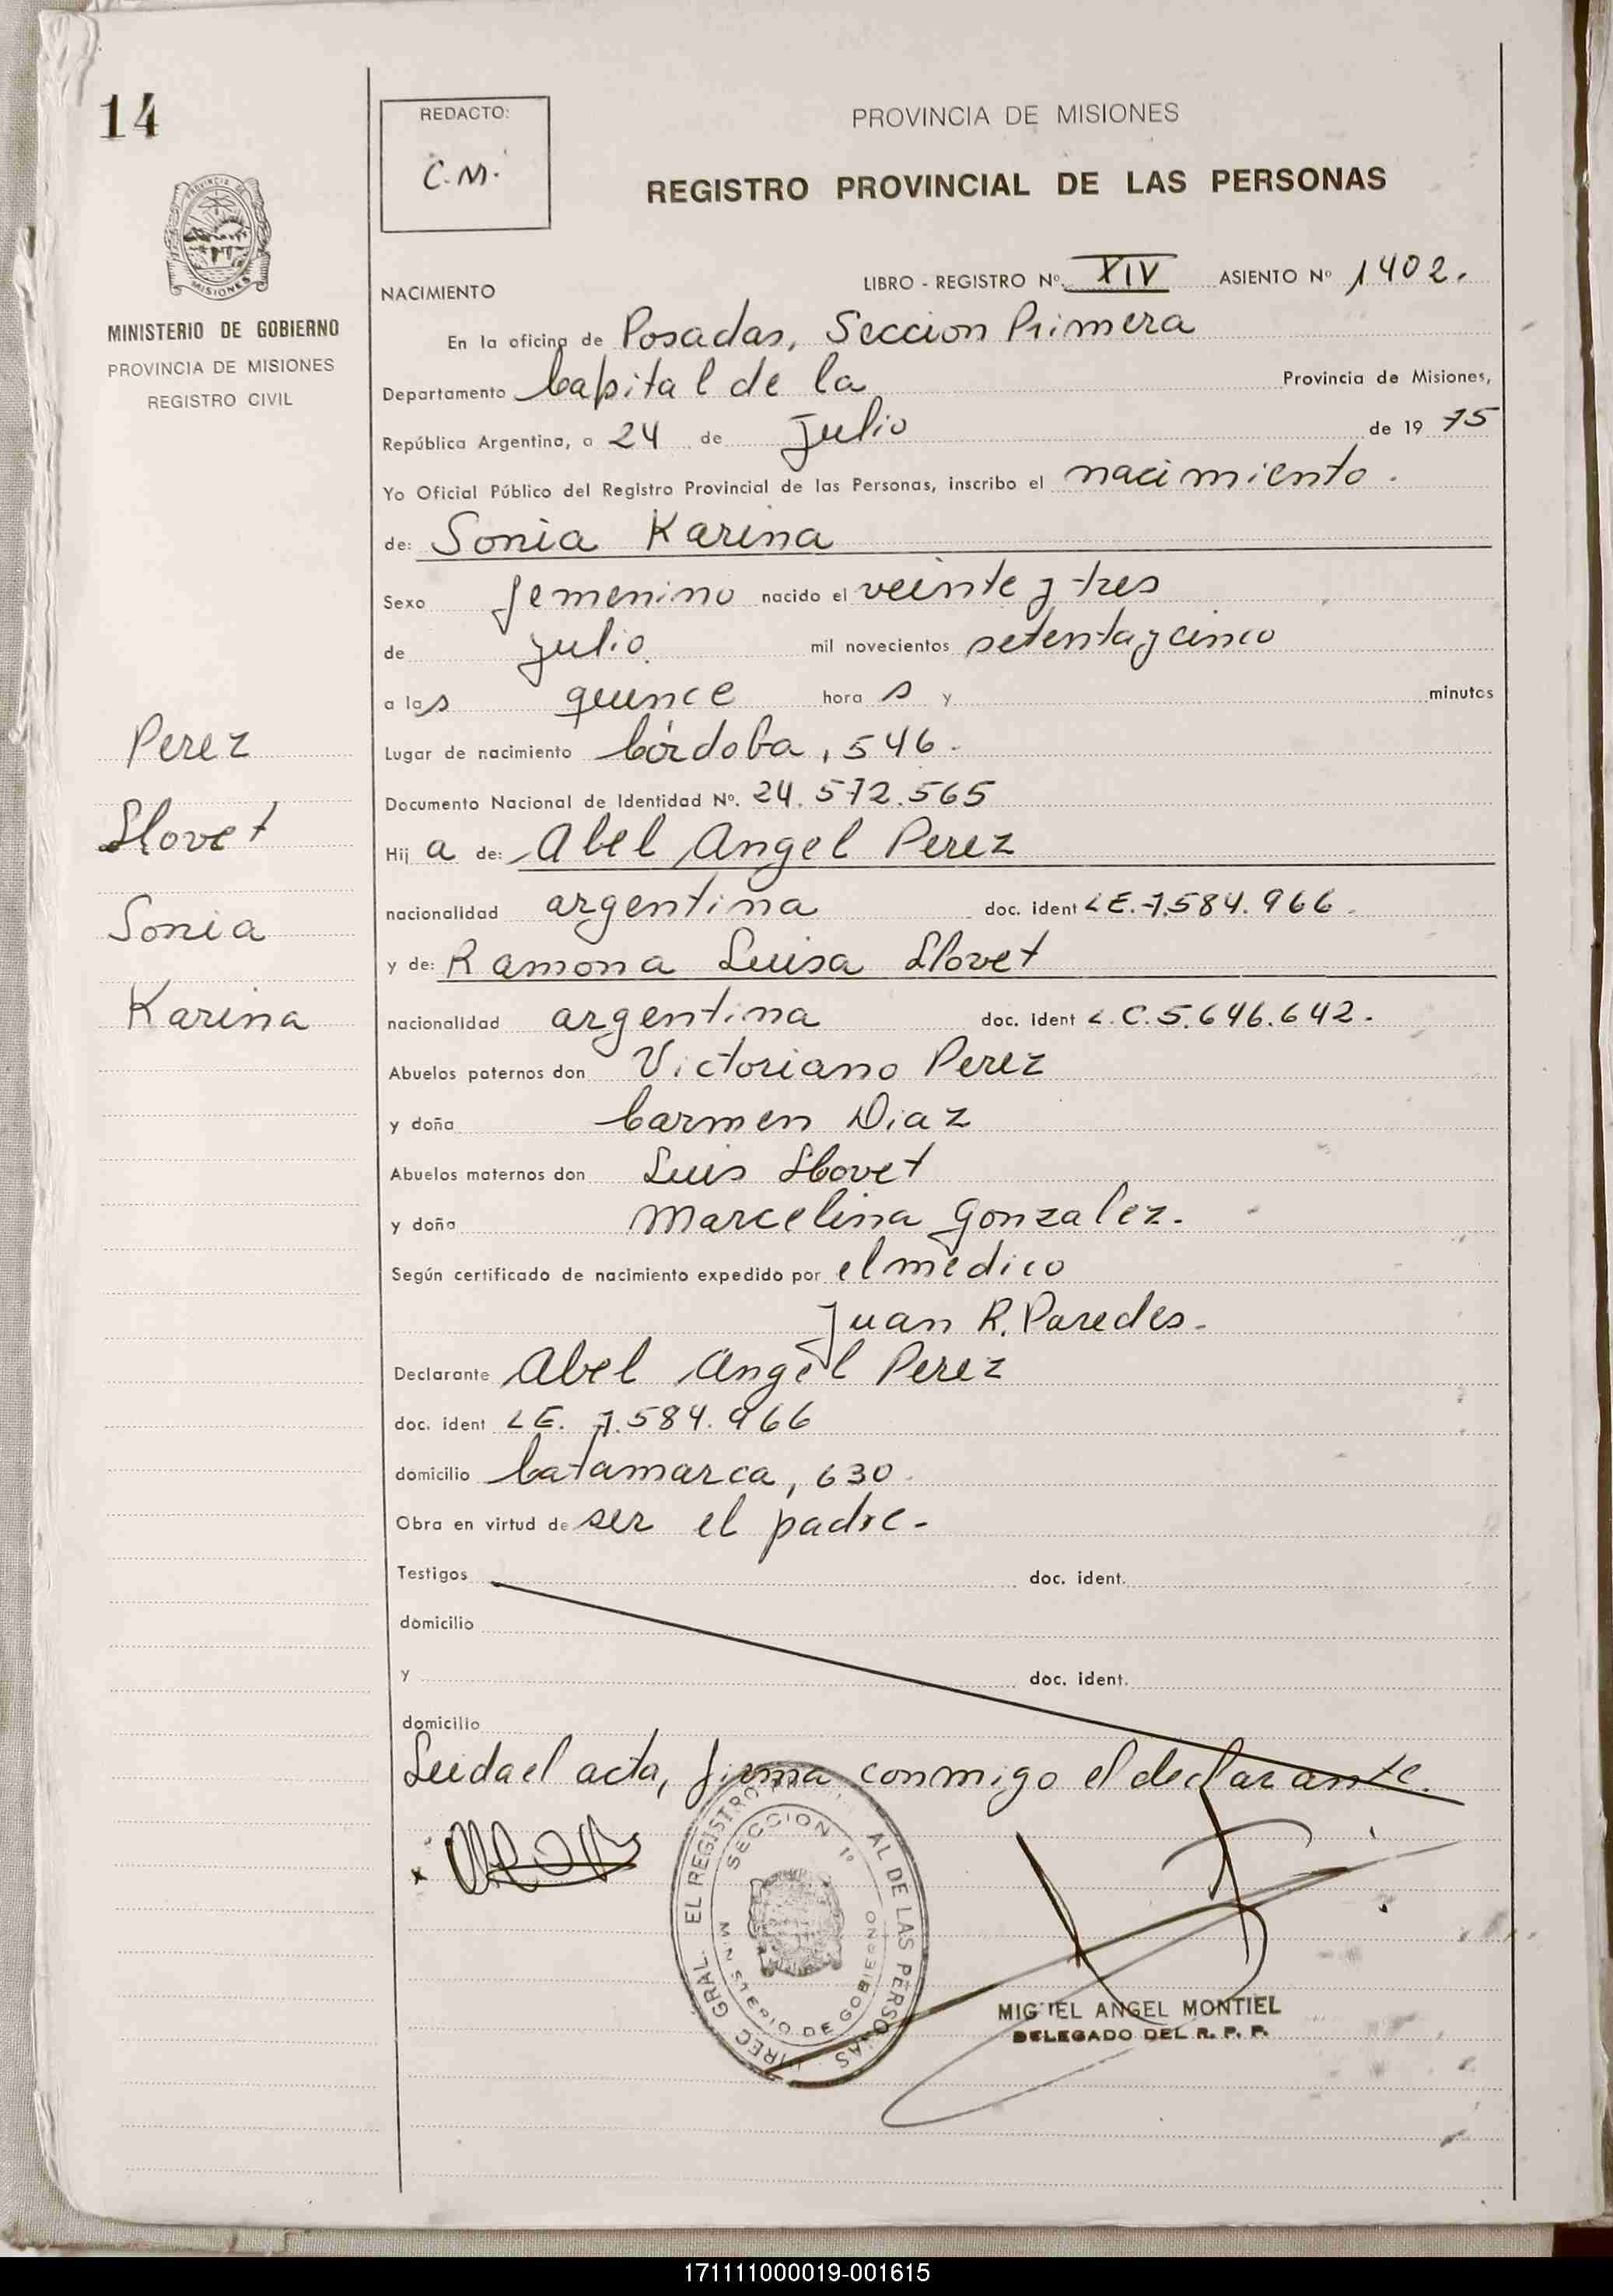 14
REDACTO:
C.M.
PROVINCIA DE MISIONES
REGISTRO PROVINCIAL DE LAS PERSONAS
PROVINCIA DE
MISIONES
MINISTERIO DE GOBIERNO
PROVINCIA DE MISIONES
REGISTRO CIVIL
NACIMIENTO
LIBRO - REGISTRO Nº. XIV ASIENTO Nº 1402.
En la oficina de Posadas, Seccion Primera
Departamento Capital de la Provincia de Misiones,
República Argentina, a 24 de Julio de 19 75
Yo Oficial Público del Registro Provincial de las Personas, inscribo el nacimiento.
de: Sonia Karina
Sexo femenino nacido el veinte y tres
de Julio mil novecientos setenta y cinco
a las quince hora s y minutos
Lugar de nacimiento Córdoba, 546.
Documento Nacional de Identidad Nº. 24.572.565
Hij a de: Abel Angel Perez
nacionalidad argentina doc. ident L.E. 7.584.966.
y de: Ramona Luisa Llovet
nacionalidad argentina doc. ident L.C. 5.646.642.
Abuelos paternos don Victoriano Perez
y doña Carmen Diaz
Abuelos maternos don Luis Llovet
y doña Marcelina Gonzalez.
Según certificado de nacimiento expedido por el médico
Juan R. Paredes.
Declarante Abel Angel Perez
doc. ident L.E. 7.584.966
domicilio Catamarca, 630.
Obra en virtud de ser el padre.
Testigos doc. ident.
domicilio
y doc. ident.
domicilio
Leida el acta, firma conmigo el declarante.
Perez
Llovet
Sonia
Karina
DIREC GRAL. EL REGISTRO AL DE LAS PERSONAS
SECCION 1º
MINISTERIO DE GOBIERNO
MIGUEL ANGEL MONTIEL
DELEGADO DEL R. P. P.
171111000019-001615